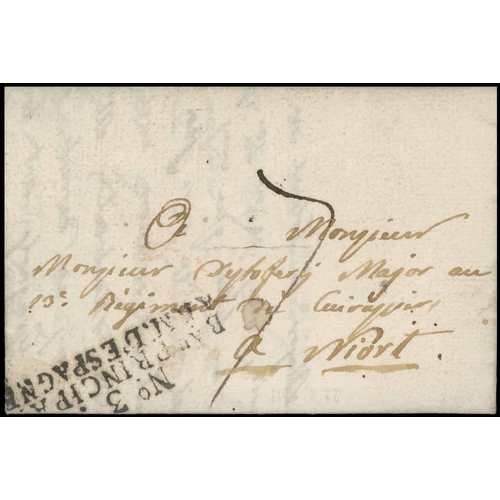 A Monsieur
Monsieur Major au
13e Régiment de Cuirassiers
a Niort
7
No 3
Bau PRINCIPAL
ARM. D'ESPAGNE